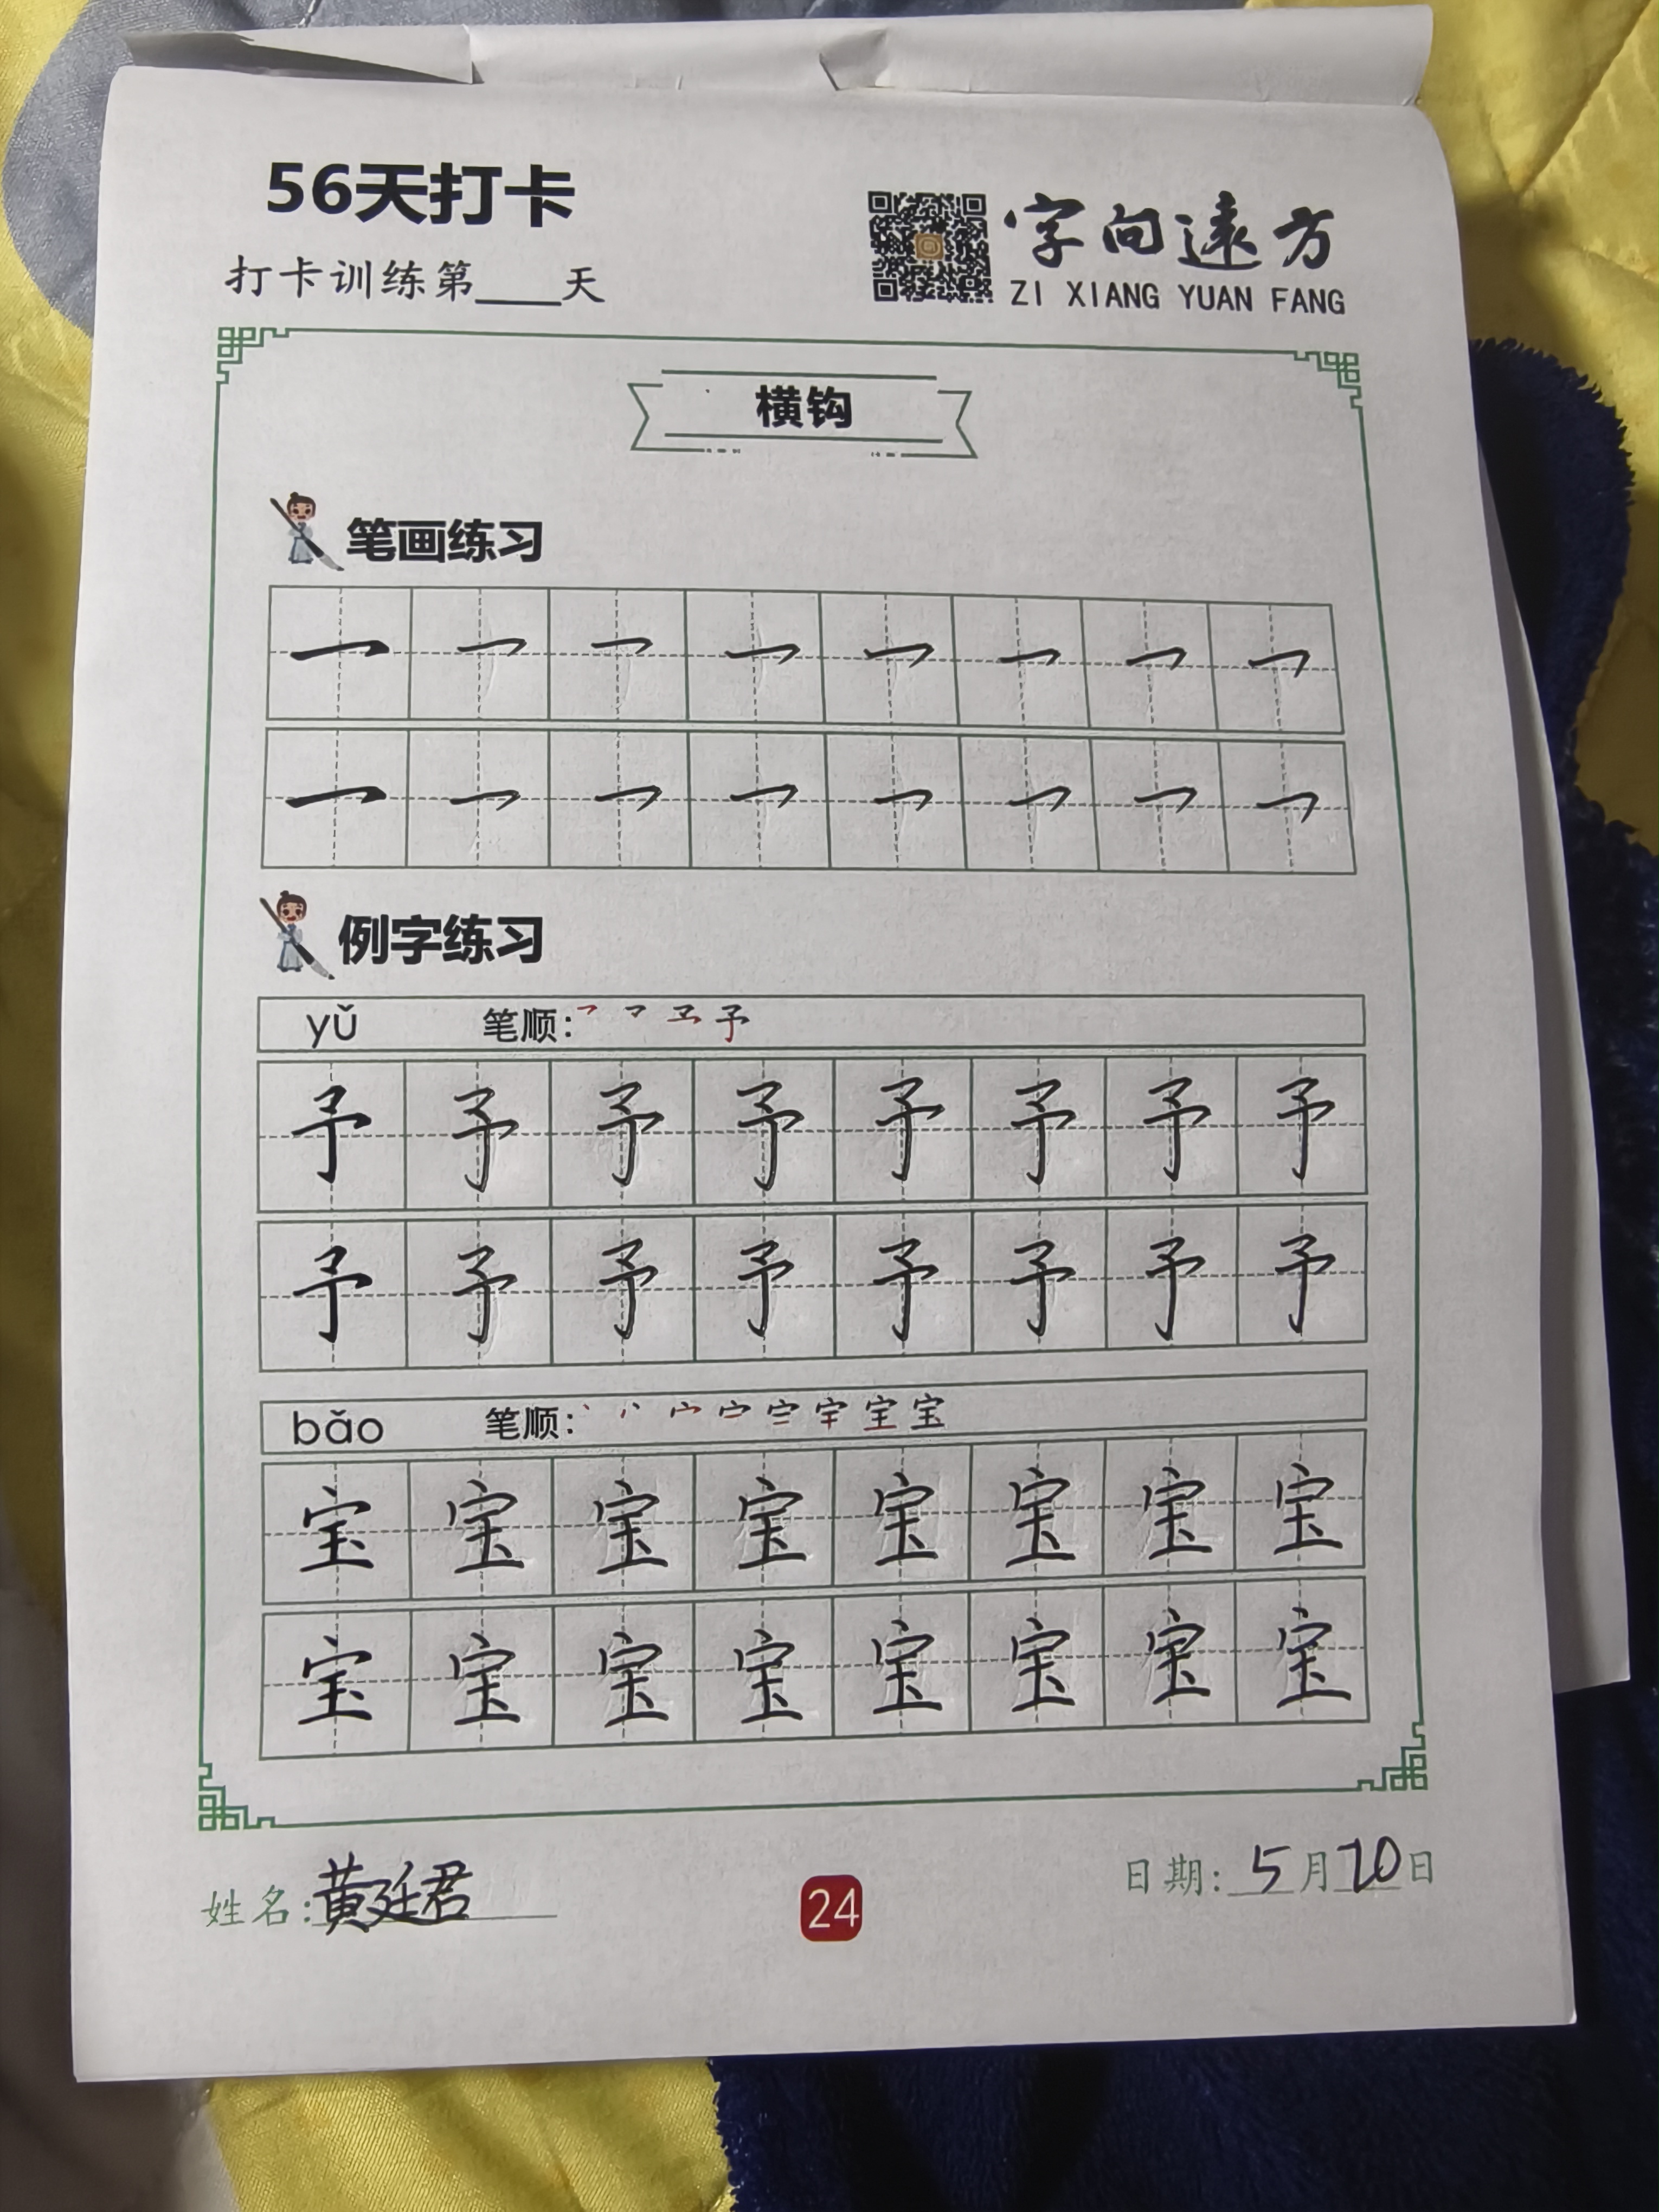 56天打卡
打卡训练第____天
字向遠方
ZI XIANG YUAN FANG
横钩
笔画练习
㇖ ㇖ ㇖ ㇖ ㇖ ㇖ ㇖ ㇖
㇖ ㇖ ㇖ ㇖ ㇖ ㇖ ㇖ ㇖
例字练习
yǔ 笔顺: 予
予 予 予 予 予 予 予 予
予 予 予 予 予 予 予 予
bǎo 笔顺: 宝
宝 宝 宝 宝 宝 宝 宝 宝
宝 宝 宝 宝 宝 宝 宝 宝
姓名: 黄廷君
24
日期: 5月20日